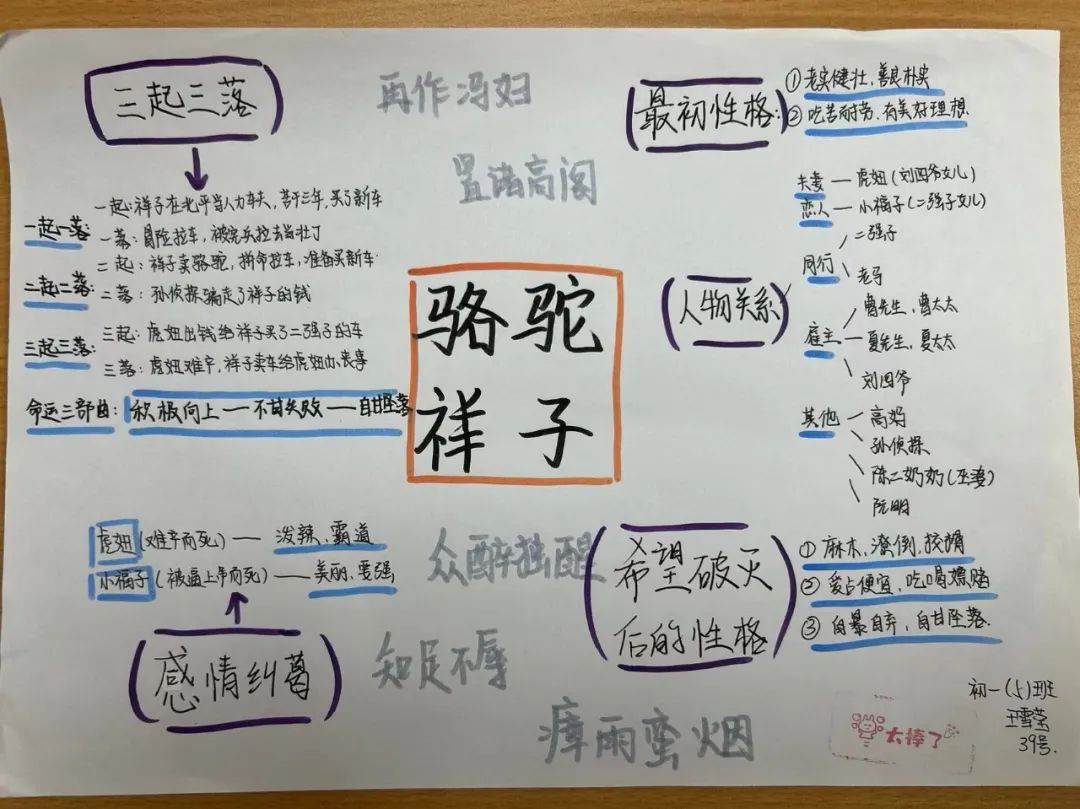 三起三落
一起一落:
一起:祥子在北平当人力车夫,苦干三年,买了新车
一落:冒险拉车,被宪兵拉去当壮丁
二起二落:
二起:祥子卖骆驼,拼命拉车,准备买新车
二落:孙侦探骗走了祥子的钱
三起三落:
三起:虎妞出钱给祥子买了二强子的车
三落:虎妞难产,祥子卖车给虎妞办丧事
命运三部曲:积极向上——不甘失败——自甘坠落
再作冯妇
置诸高阁
骆驼
祥子
最初性格:
①老实健壮,善良朴实
②吃苦耐劳,有美好理想
人物关系
夫妻—虎妞(刘四爷女儿)
恋人—小福子(二强子女儿)
同行
二强子
老马
雇主
曹先生,曹太太
夏先生,夏太太
刘四爷
其他
高妈
孙侦探
陈二奶奶(巫婆)
阮明
虎妞(难产而死)——泼辣、霸道
小福子(被逼上吊而死)——美丽,要强
感情纠葛
众醉独醒
知足不辱
瘴雨蛮烟
希望破灭
后的性格
①麻木,潦倒,狡猾
②爱占便宜,吃喝嫖赌
③自暴自弃,自甘坠落
初一(5)班
39号
太棒了